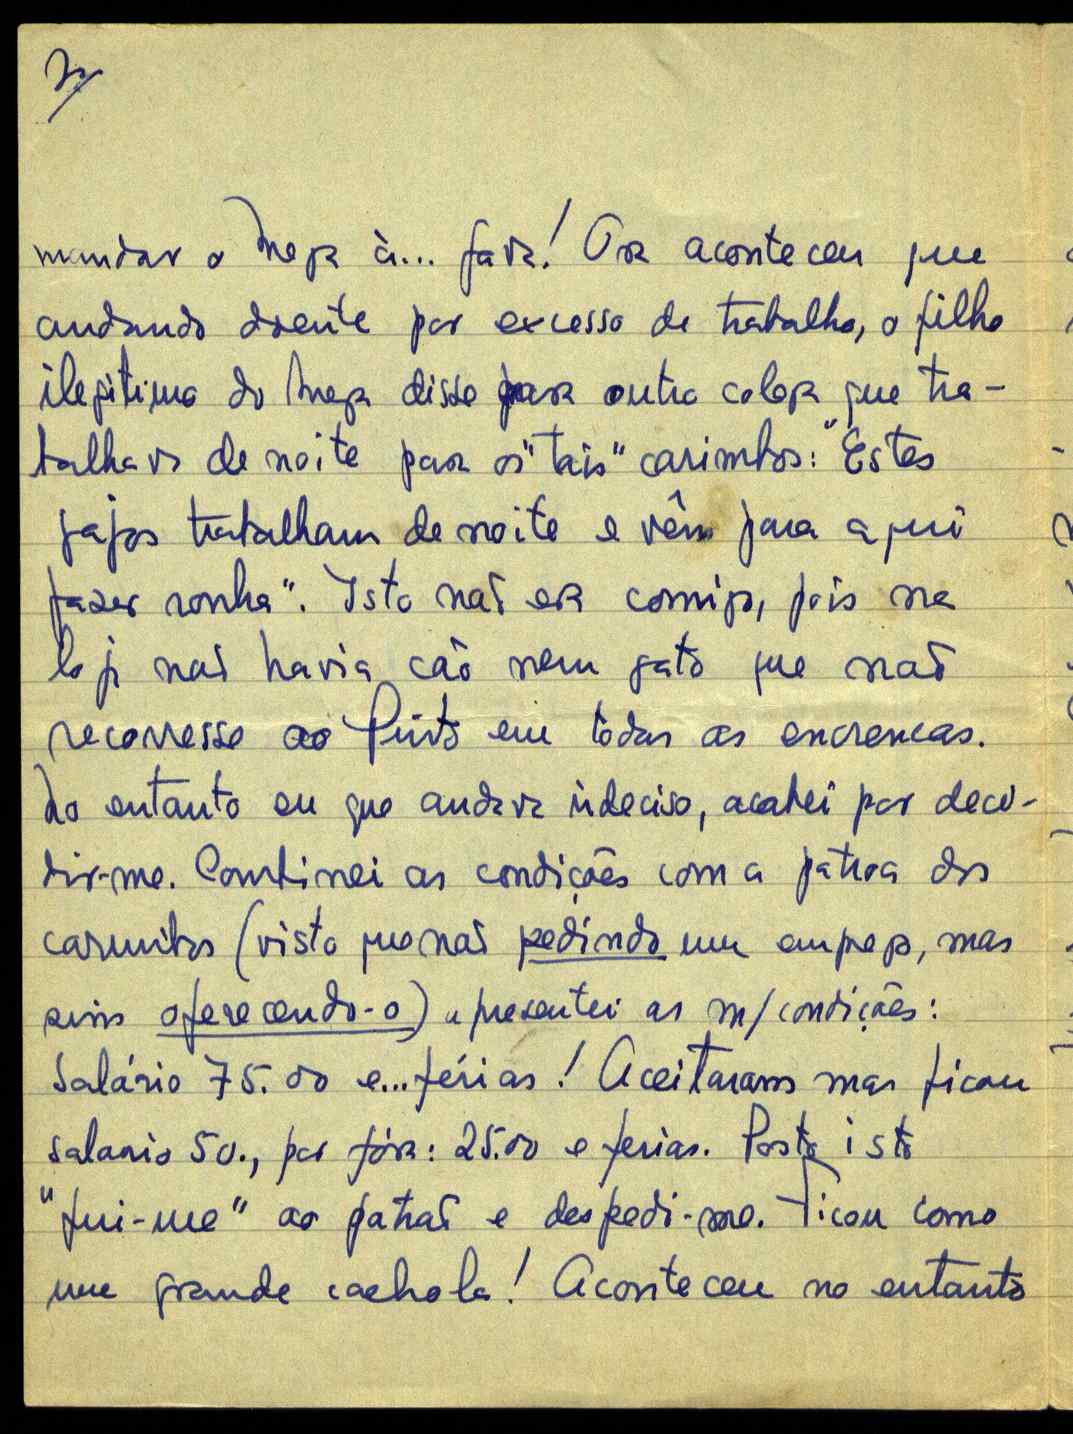 mandar o Nega à... fava! Ora aconteceu que
andando doente por excesso de trabalho, o filho
ilegitimo do Nega disse para outro colega que tra-
balhava de noite para os "tais" carimbos: "Estes
gajos trabalham de noite e vêm para aqui
fazer ronha". Isto não era comigo, pois na
loja não havia cão nem gato que não
recorresse ao Pinto em todas as encrencas.
No entanto eu que andava indeciso, acabei por deci-
dir-me. Combinei as condições com a patroa dos
carimbos (visto que não pedindo um emprego, mas
sim oferecendo-o) apresentei as m/condições:
Salário 75.00 e...férias! Aceitaram mas ficou
salario 50., por fóra: 25.00 e ferias. Posto isto
"fui-me" ao patrão e despedi-me. Ficou como
um grande cachola! Aconteceu no entanto